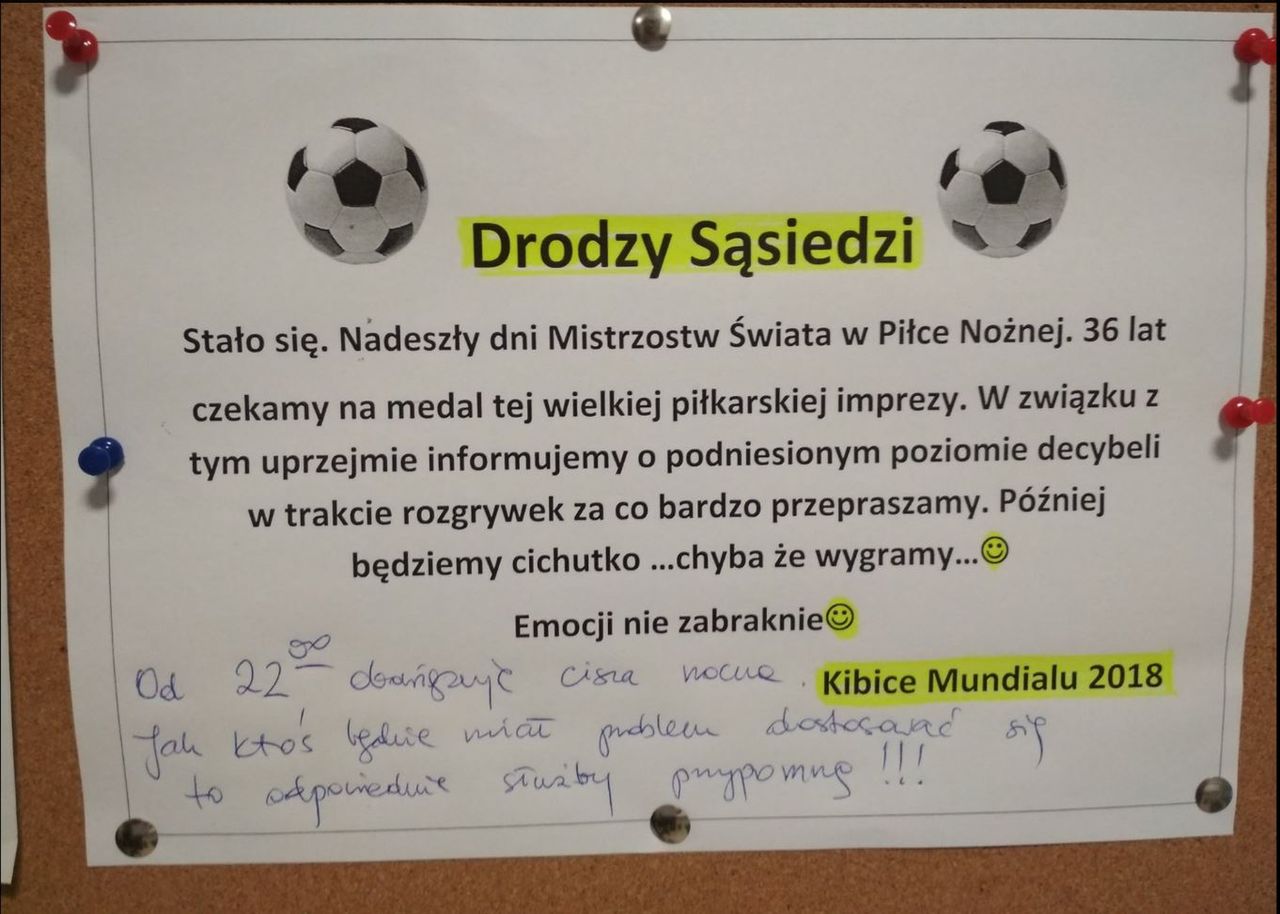 Drodzy Sąsiedzi
Stało się. Nadeszły dni Mistrzostw Świata w Piłce Nożnej. 36 lat
czekamy na medal tej wielkiej piłkarskiej imprezy. W związku z
tym uprzejmie informujemy o podniesionym poziomie decybeli
w trakcie rozgrywek za co bardzo przepraszamy. Później
będziemy cichutko ...chyba że wygramy...☺
Emocji nie zabraknie☺
Kibice Mundialu 2018
Od 22⁰⁰ cisza nocna.
Jak ktoś będzie miał problem dostosować się
to odpowiednie służby przypomną!!!